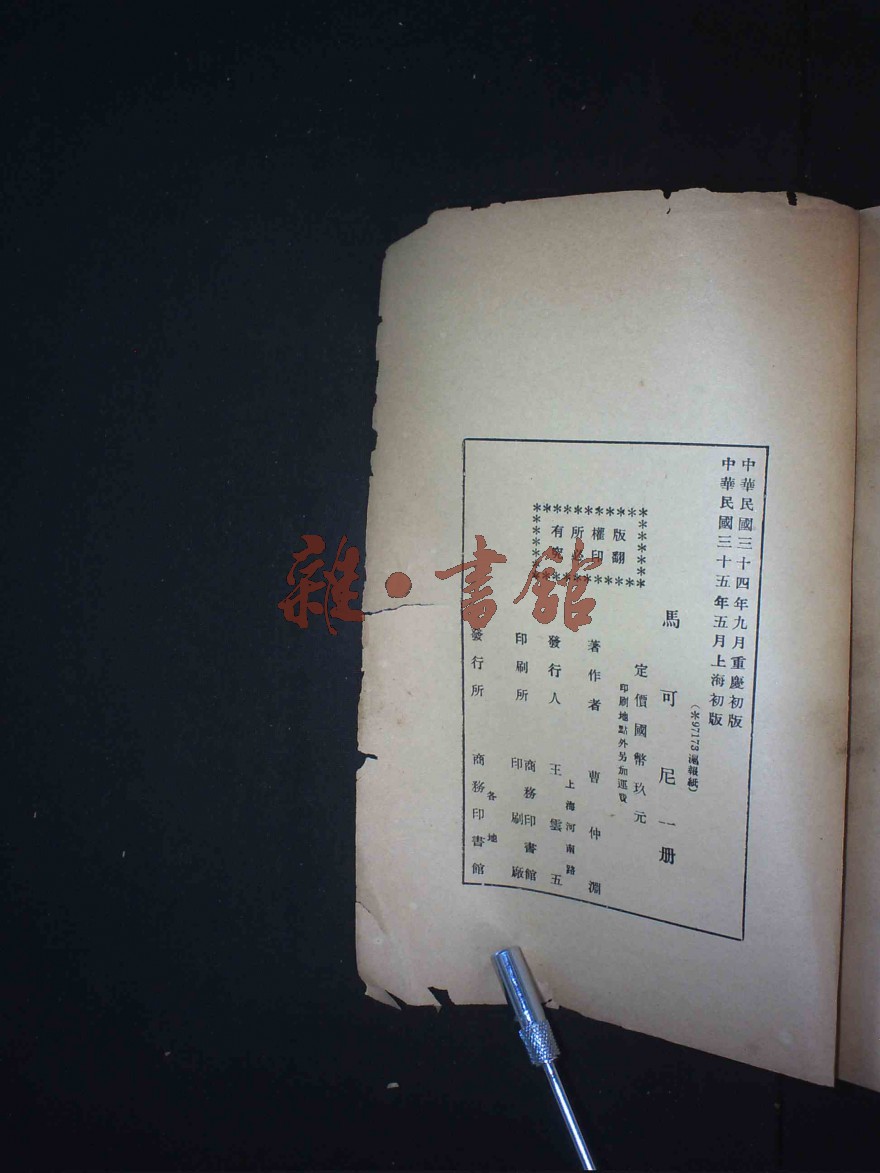 中華民國三十四年九月重慶初版
中華民國三十五年五月上海初版
(＊97173滬報紙)
馬可尼一册
定價國幣玖元
印刷地點外另加運費
版權所有
翻印必究
著作者 曹仲淵
上海河南路
發行人 王雲五
印刷所 商務印書館
印刷廠
各地
發行所 商務印書館
雜·書館